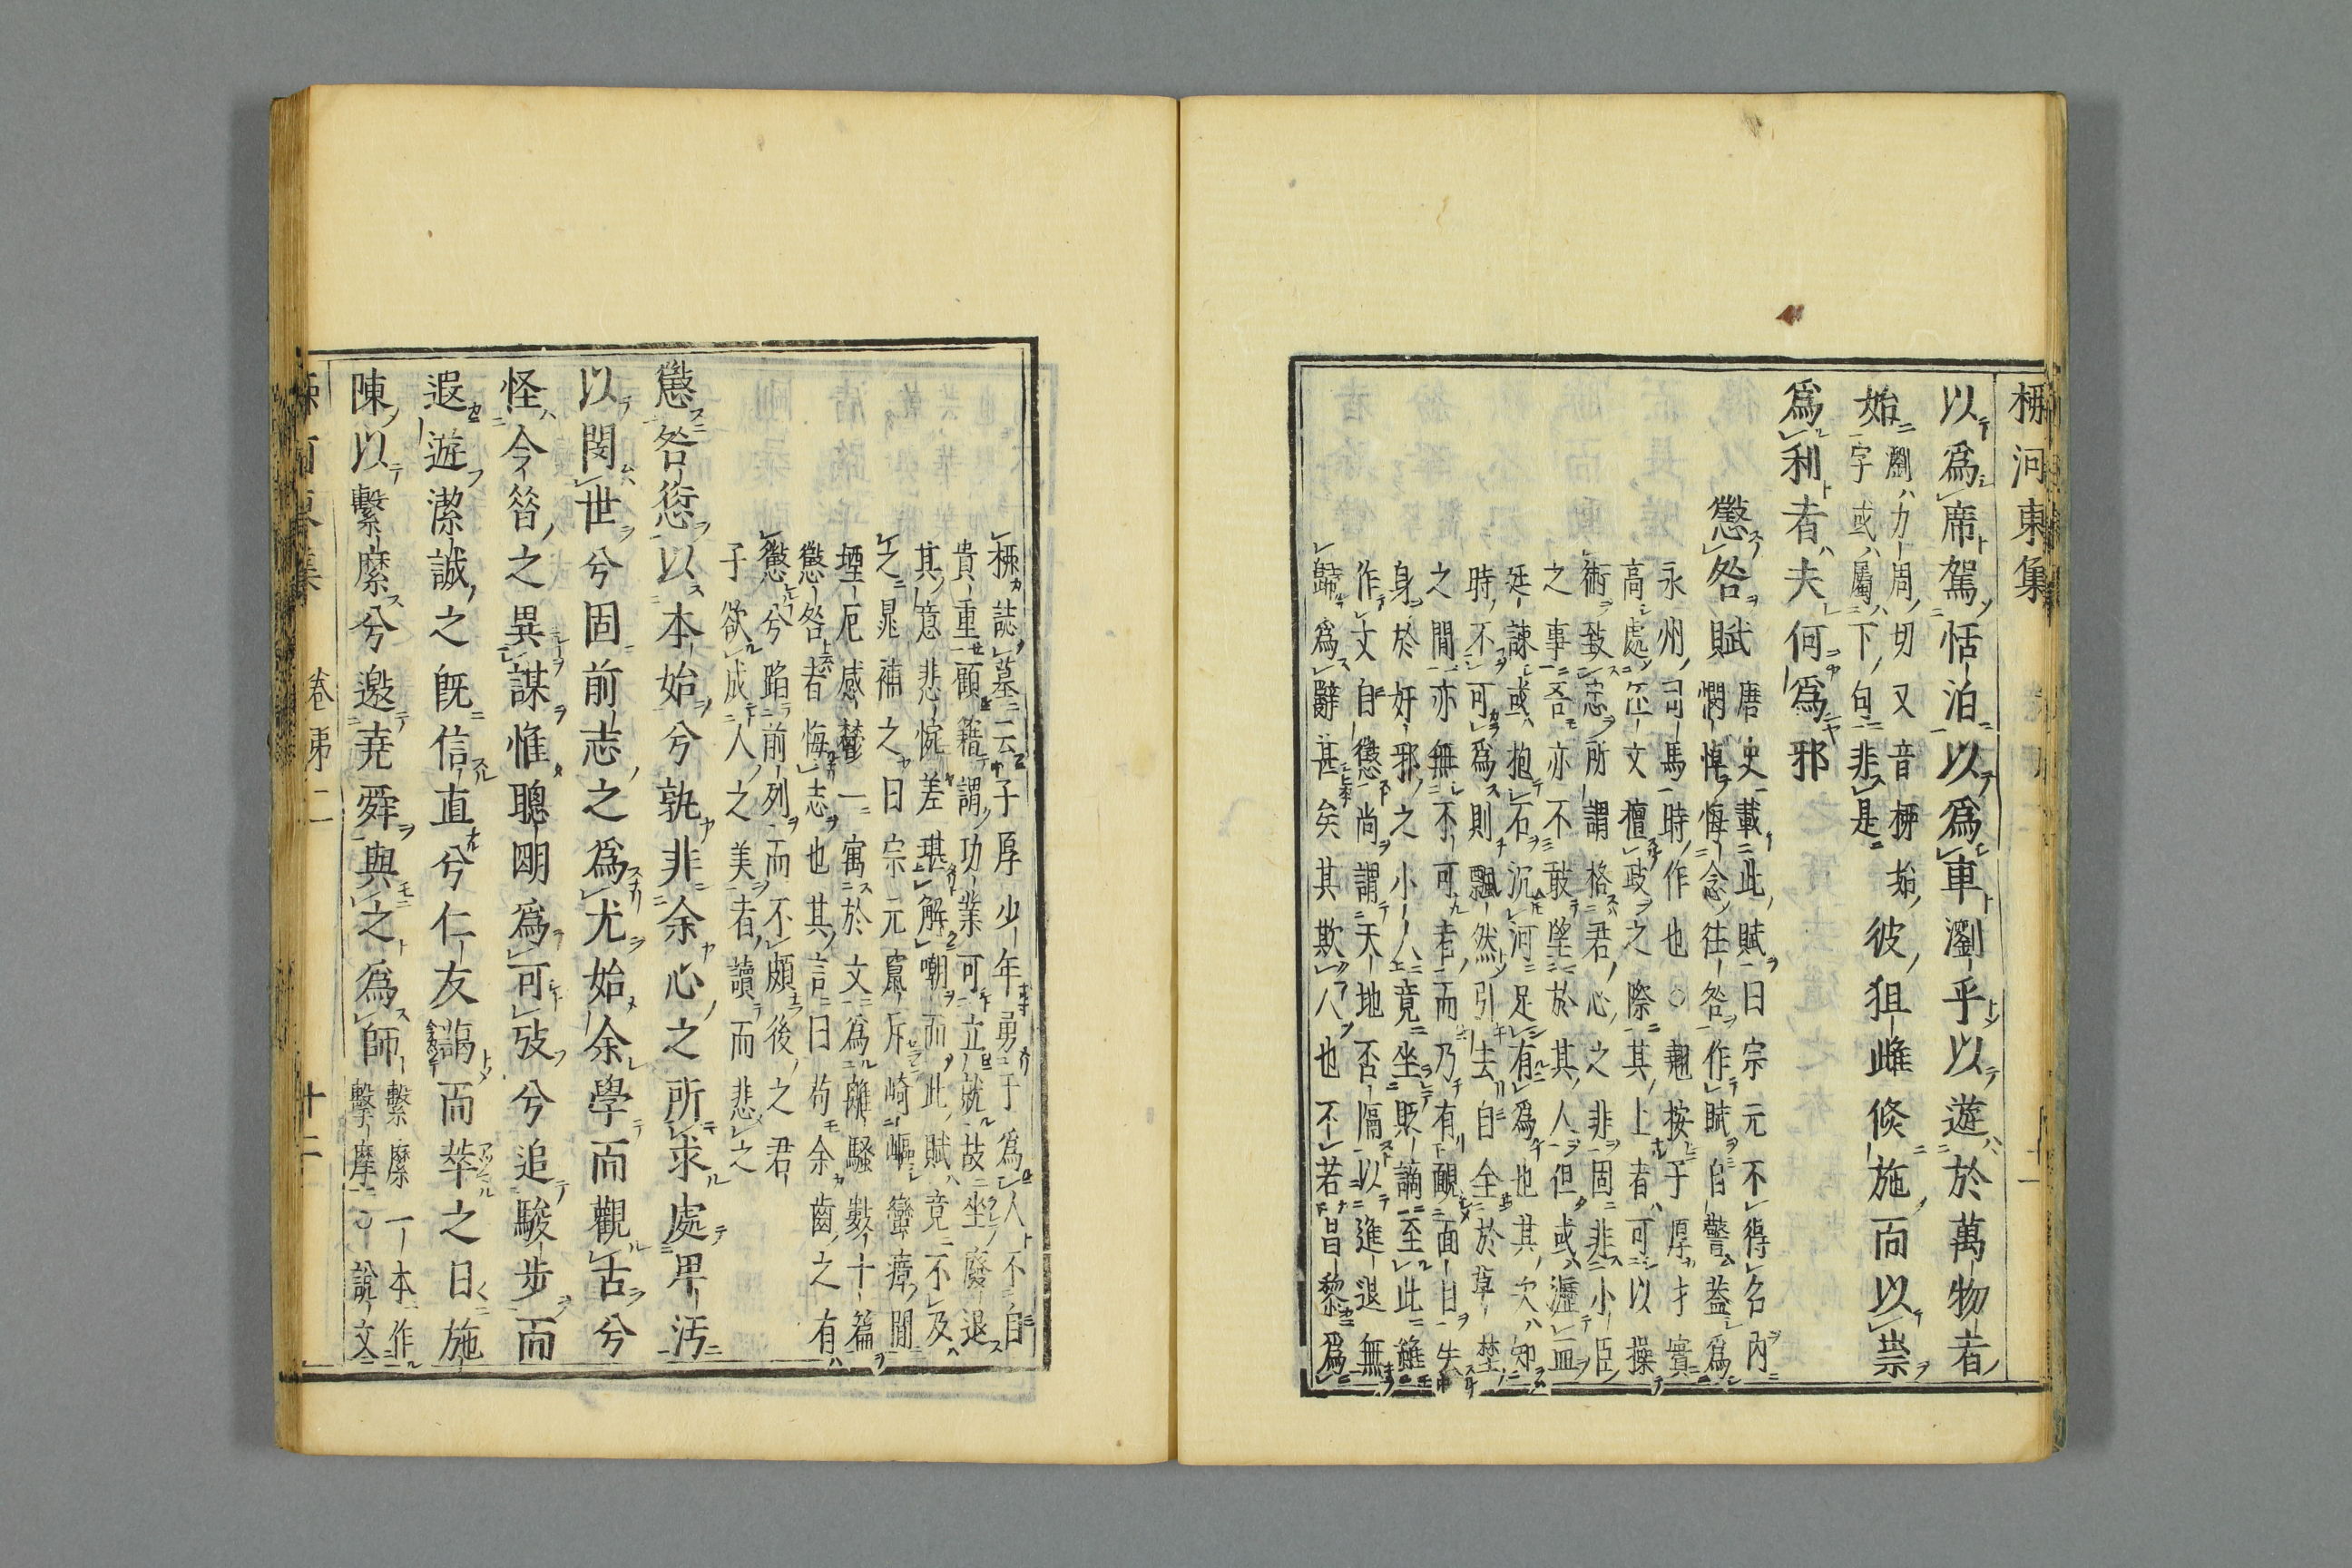 柳河東集
以爲席駕恬泊以爲車瀏乎以遊於萬物者
始瀏力周切又音柳始字或屬下句非是彼狙雌倏施而以祟
爲利者夫何爲邪
懲咎賦唐史載此賦曰宗元不得召內
憫悼悔念往咎作賦自警蓋爲
永州司馬時作也○翹按子厚才實
高處位文檀一時之際其上者可以操
術致志所謂格君心之非固非小臣
之事吾亦不敢望於其人但或瀝血
廷諫或抱石沉河足有爲也其次知
時不可爲則飄然引去自全於草埜
之間亦無不可者而乃有靦面目失
身於奸邪之小人竟坐貶謫至此雖
作文自懲尚謂天地否隔以進退無
歸爲辭甚矣其欺人也不若昌黎爲
柳誌墓云子厚少年勇于爲人不自
貴重顧藉謂功業可立就故坐廢退
其意悲惋差堪解嘲而此賦竟不及
之晁補之曰宗元竄斥崎嶇蠻瘴間
堙厄感鬱一寓於文爲離騷數十篇
懲咎者悔志也其言曰苟余齒之有
懲兮蹈前列而不頗後之君
子欲成人之美者讀而悲之
懲咎愆以本始兮孰非余心之所求處卑汚
以閔世兮固前志之爲尤始余學而觀古兮
怪今昔之異謀惟聰明爲可攷兮追駿步而
遐遊潔誠之既信直兮仁友藹而萃之日施
陳以繫縻兮邀堯舜與之爲師繫縻一本作
擊摩○說文
卷第二
十二